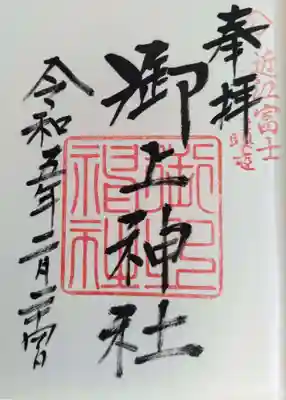 近江富士
奉拝
御上神社
令和五年二月二十四日